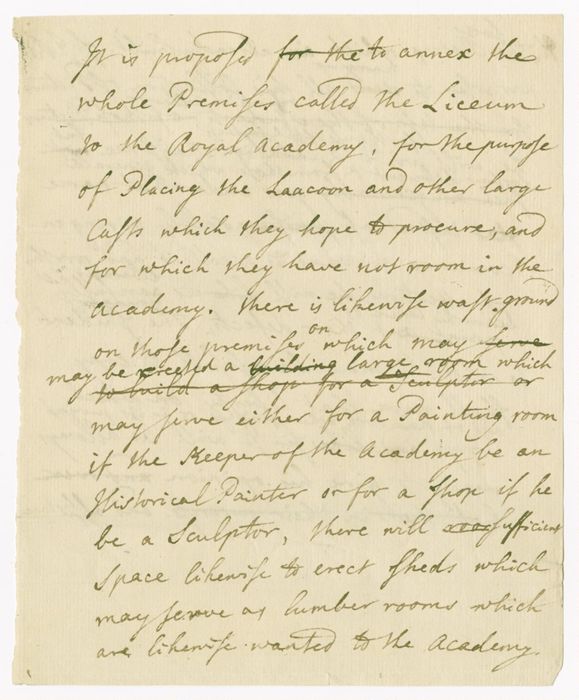 It is proposed for the to annex the
whole Premises called the Liceum
to the Royal Academy, for the purpose
of Placing the Laacoon and other large
Casts which they hope to procure, and
for which they have not room in the
Academy. there is likewise wast ground
on those premises on which may serve
may be erected a building large room which
to build a shop for a Sculptor or
may serve either for a Painting room
if the Keeper of the Academy be an
Historical Painter or for a Shop if he
be a Sculptor, there will sufficient
space likewise to erect sheds which
may serve as lumber rooms which
are likewise wanted to the Academy.